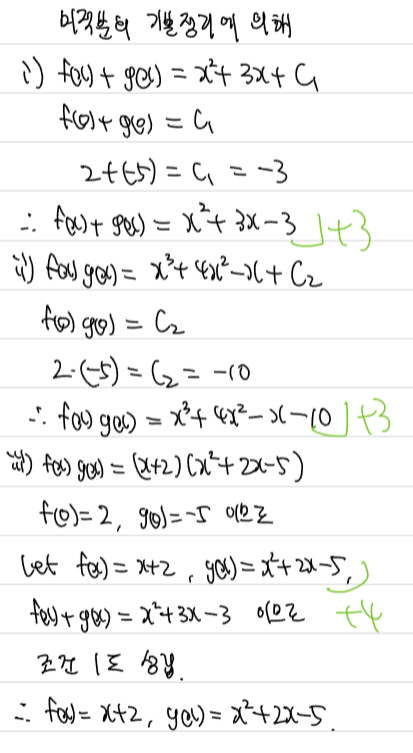 미적분의 기본정리에 의해
i) f(x) + g(x) = x² + 3x + C₁
f(0) + g(0) = C₁
2 + (-5) = C₁ = -3
∴ f(x) + g(x) = x² + 3x - 3 」+3
ii) f(x) g(x) = x³ + 4x² - x + C₂
f(0) g(0) = C₂
2·(-5) = C₂ = -10
∴ f(x) g(x) = x³ + 4x² - x - 10 」+3
iii) f(x) g(x) = (x+2)(x² + 2x - 5)
f(0) = 2, g(0) = -5 이므로
Let f(x) = x+2, g(x) = x² + 2x - 5, 」
f(x) + g(x) = x² + 3x - 3 이므로 +4
조건 1도 성립.
∴ f(x) = x+2, g(x) = x² + 2x - 5.